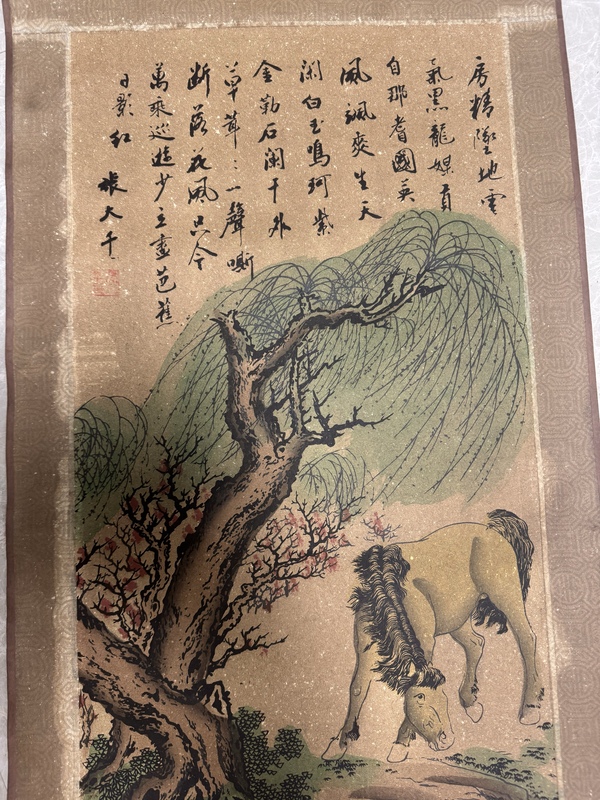 房精墜地雲
氣黑龍媒貢
自那耆國英
風颯爽生天
閑白玉鳴珂紫
金勒石闌干外
草茸：一聲嘶
断落花風只今
萬乘巡遊少立盡芭蕉
日影紅 張大千